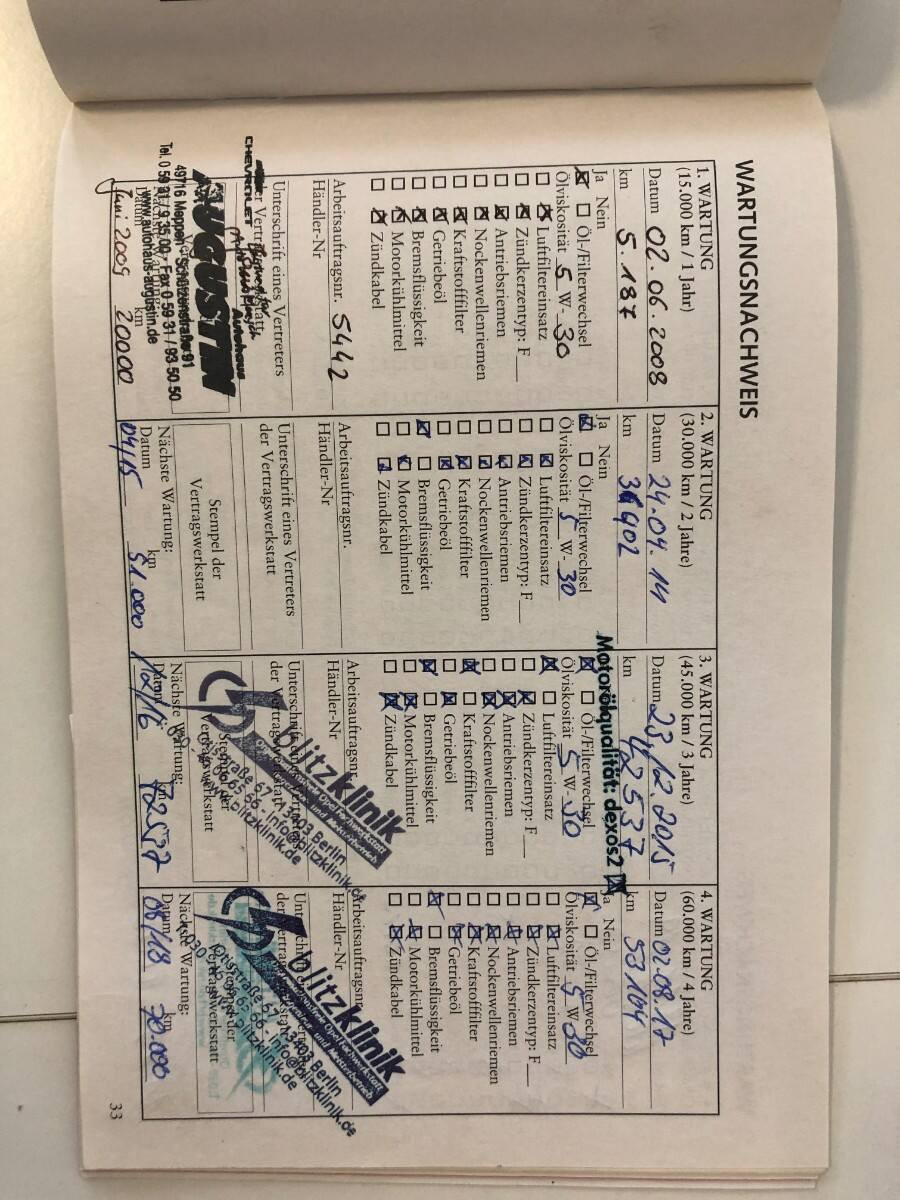 WARTUNGSNACHWEIS
1. WARTUNG
(15.000 km / 1 Jahr)
Datum 02.06.2008
km 5.187
Ja Nein
Öl-/Filterwechsel
Ölviskosität 5 W- 30
Luftfiltereinsatz
Zündkerzentyp: F
Antriebsriemen
Nockenwellenriemen
Kraftstofffilter
Getriebeöl
Bremsflüssigkeit
Motorkühlmittel
Zündkabel
Arbeitsauftragsnr. 5442
Händler-Nr
Unterschrift eines Vertreters
CHEVROLET
Autohaus
AUGUSTIN
49716 Meppen · Schützenstraße 91
Tel. 0 59 31 / 9 35 00 · Fax 0 59 31 / 93 50 50
www.autohaus-augustin.de
Datum km
Juni 2009 20000
2. WARTUNG
(30.000 km / 2 Jahre)
Datum 24.09.14
km
Ja Nein
Öl-/Filterwechsel
Ölviskosität 5 W- 30
Luftfiltereinsatz
Zündkerzentyp: F
Antriebsriemen
Nockenwellenriemen
Kraftstofffilter
Getriebeöl
Bremsflüssigkeit
Motorkühlmittel
Zündkabel
Arbeitsauftragsnr.
Händler-Nr
Unterschrift eines Vertreters
der Vertragswerkstatt
Stempel der
Vertragswerkstatt
Nächste Wartung:
Datum km
09/15 51.000
3. WARTUNG
(45.000 km / 3 Jahre)
Datum 23.12.2015
km 42537
Motorölqualität: dexos2
Öl-/Filterwechsel
Ölviskosität 5 W- 30
Luftfiltereinsatz
Zündkerzentyp: F
Antriebsriemen
Nockenwellenriemen
Kraftstofffilter
Getriebeöl
Bremsflüssigkeit
Motorkühlmittel
Zündkabel
Arbeitsauftragsnr.
Händler-Nr
Unterschrift
der Vertragswerkstatt
blitzklinik
13403 Berlin
info@blitzklinik.de
www.blitzklinik.de
Nächste Wartung:
Datum km
12/16 72537
4. WARTUNG
(60.000 km / 4 Jahre)
Datum 02.08.17
km 53104
Ja Nein
Öl-/Filterwechsel
Ölviskosität 5 W- 30
Luftfiltereinsatz
Zündkerzentyp: F
Antriebsriemen
Nockenwellenriemen
Kraftstofffilter
Getriebeöl
Bremsflüssigkeit
Motorkühlmittel
Zündkabel
Arbeitsauftragsnr.
Händler-Nr
blitzklinik
13403 Berlin
info@blitzklinik.de
Nächste Wartung:
Datum km
08/18
33